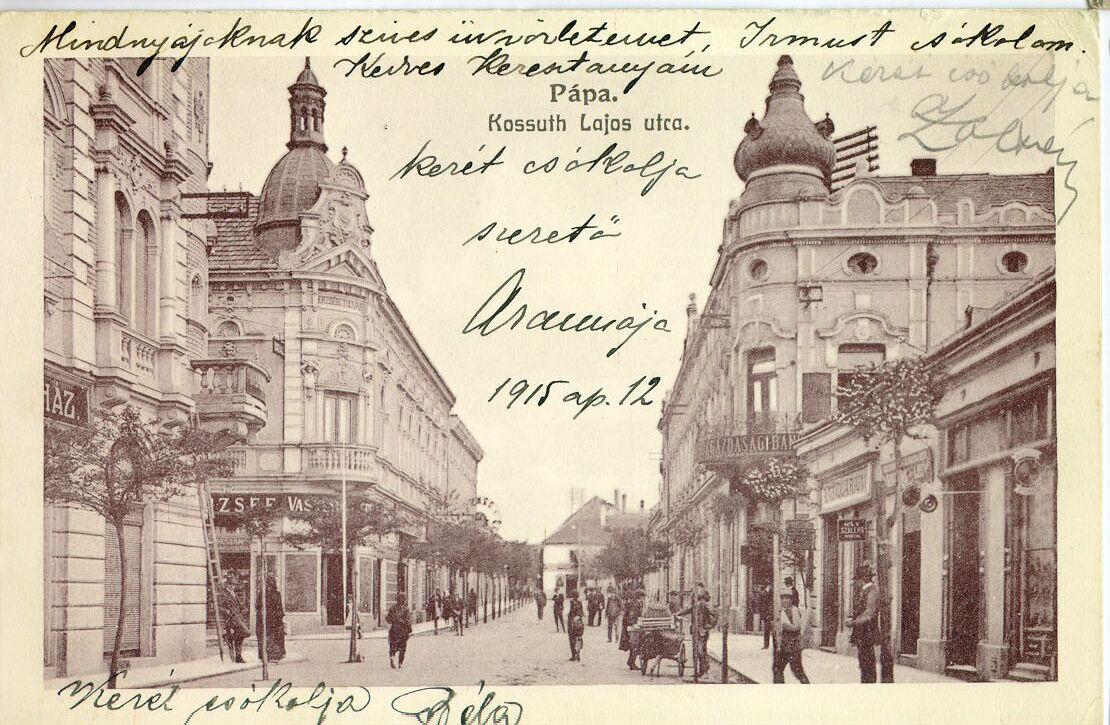 Mindnyájoknak szives üdvözletemet, Irmust csókolom.
Kedves Keresztanyám
kezét csókolja
Pápa.
Kossuth Lajos utca.
kezét csókolja
szerető
Aranmája
1915 ap. 12
HÁZ
GAZDASÁGI BAN
ZSEF VAS
SZÁLLODA
Kezét csókolja Béla